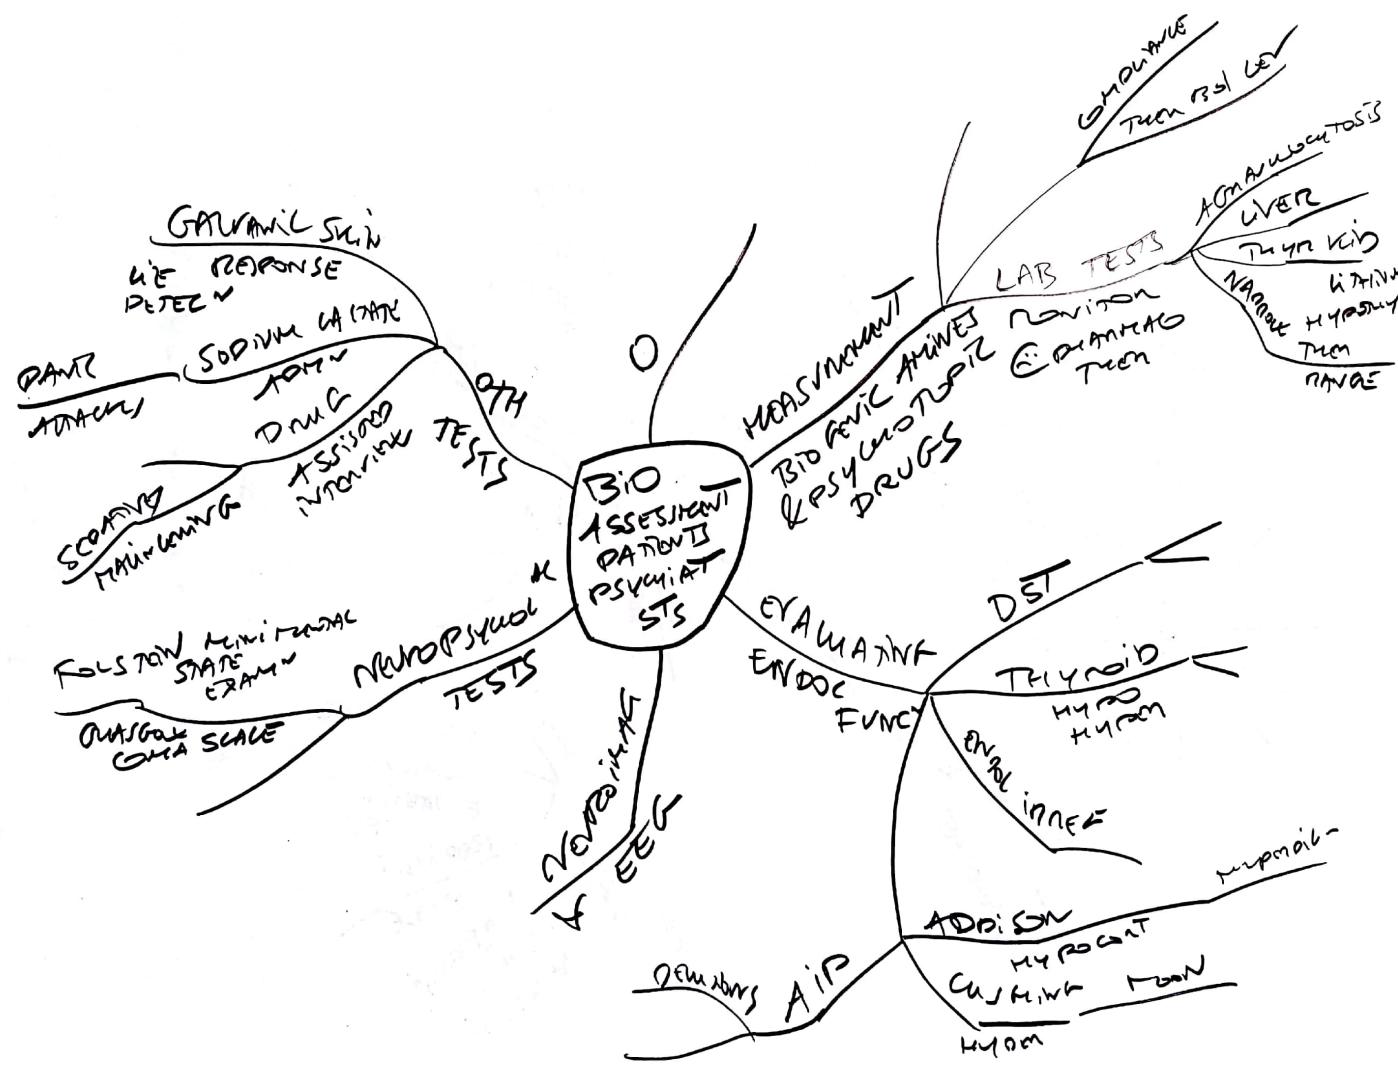 BIO
ASSESSMENT
PATIENTS
PSYCHIAT
STS
O
MEASUREMENT
BIOGENIC AMINES
& PSYCHOTROPIC
DRUGS
COMPLIANCE
THER BL LEV
LAB TESTS
MONITOR
PHARMACO
THER
AGRANULOCYTOSIS
LIVER
THYROID
LITHIUM
HYPOTHY
NARROW
THER
RANGE
EVALUATING
ENDOC
FUNCT
DST
THYROID
HYPO
HYPER
ENDOC
IRREG
ADDISON
HYPOCORT
CUSHING
MOON
HYPER
AIP
DELUSIONS
NEUROIMAG
& EEG
NEUROPSYCHOL
TESTS
FOLSTEIN MINI MENTAL
STATE
EXAM N
GLASGOW
COMA SCALE
OTH
TESTS
GALVANIC SKIN
RESPONSE
LIE
DETECN
SODIUM LACTATE
ADMN
PANIC
ATTACKS
DRUG
ASSISTED
INTERVIEW
SEDATIVE
MALINGERING